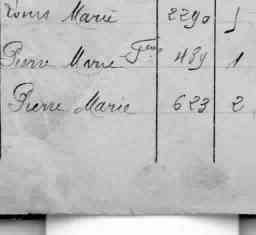 Louis Marie 2290 1
Pierre Marie Fçois 489 1
Pierre Marie 623 2